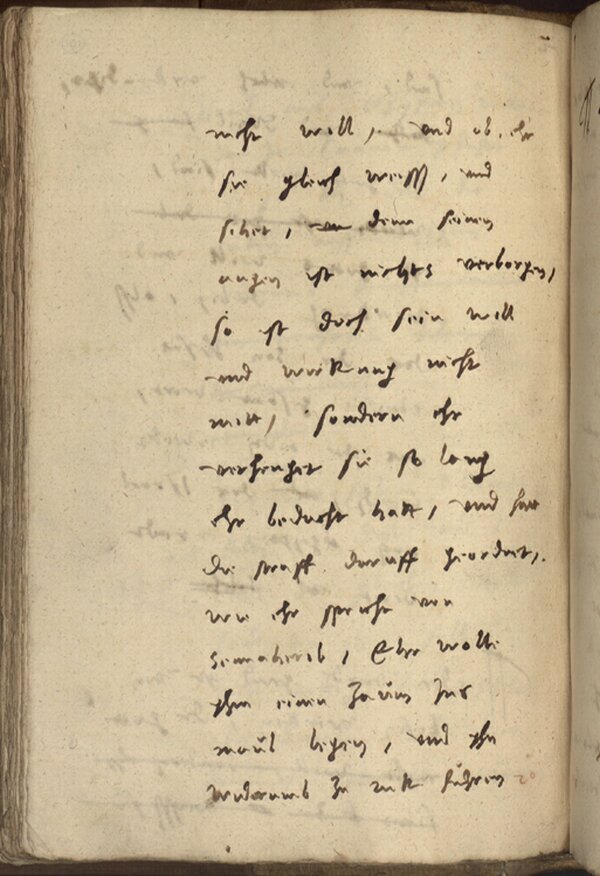 nicht will, und ob ehr
sie gleich weiß, und
sihet, denn seinen
augen ist nichts verborgen,
so ist doch sein will
und wirkung nicht
mitt, sondern ehr
verhenget sie so lang
ehr bedacht hatt, und hatt
die straff daruff geordnet,
wie ehr spricht von
Sennaherib, Ehr wolle
yhm einen Zaum Ins
maul legen, und yhn
widerumb zu ruk führen